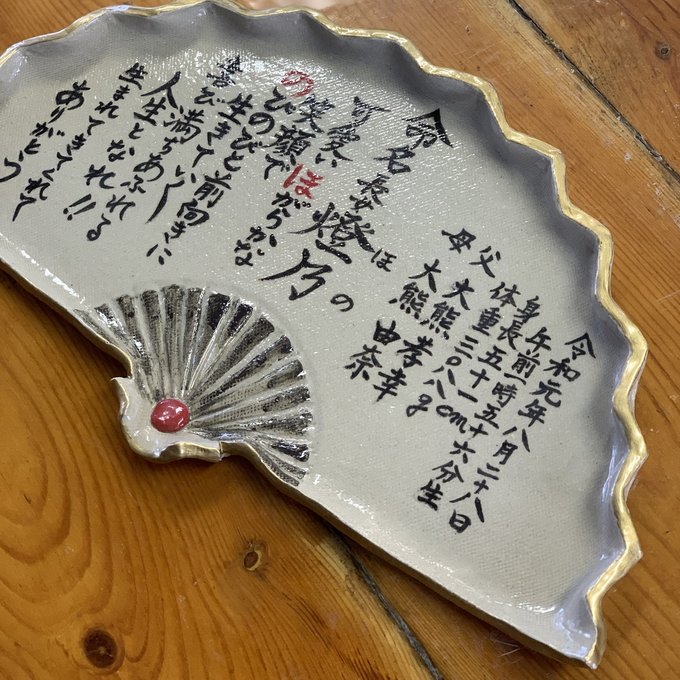 令和元年八月二十八日
午前一時五十六分生
身長五十一cm
体重三〇八八g
父 大熊孝幸
母 大熊由奈
命名 長女 燈乃
ほの
可愛い
笑顔でほがらかな
のびのびと前向きに
生きていく
喜び満ちあふれる
人生となれ!!
生まれてきてくれて
ありがとう